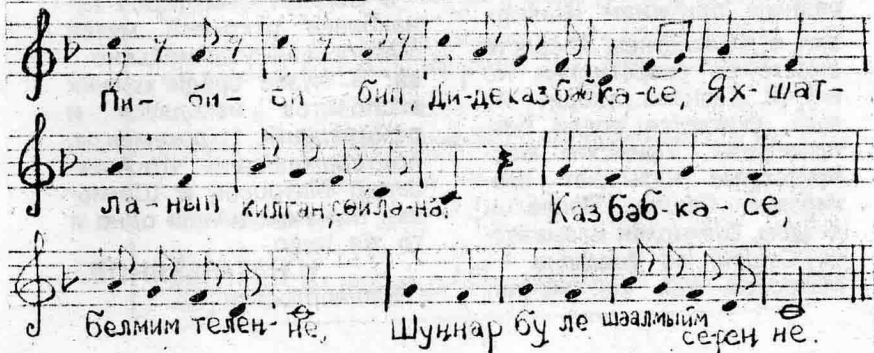 Пи- би- би бип, Ди-де каз бәбкә-се, Ях-шат-
ла-нып килгән, сөйлә-нә. Каз бәб-кә-се,
Белмим телең-не, Шуңнар бу ле шәалмыйм серең не.